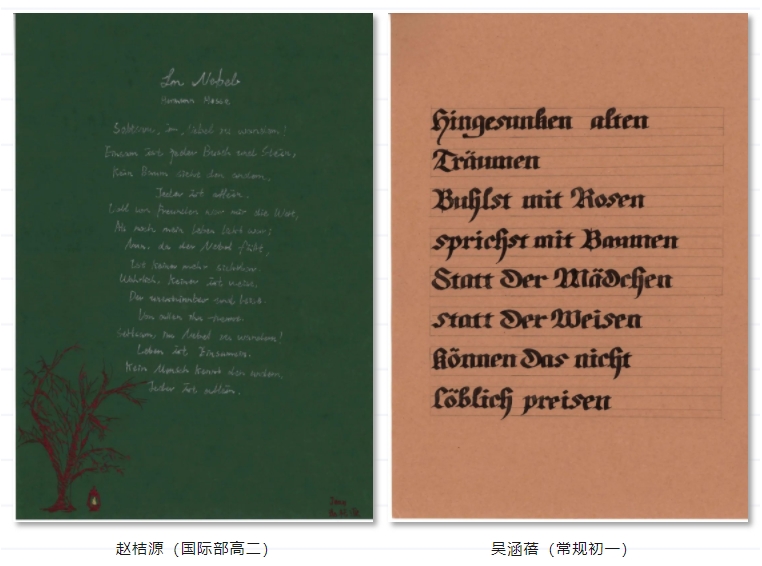 Im Nebel
Hermann Hesse
Seltsam, im Nebel zu wandern!
Einsam ist jeder Busch und Stein,
Kein Baum sieht den andern,
Jeder ist allein.
Voll von Freunden war mir die Welt,
Als noch mein Leben licht war;
Nun, da der Nebel fällt,
Ist keiner mehr sichtbar.
Wahrlich, keiner ist weise,
Der und leise
Von allen ihn
Seltsam im Nebel zu wandern!
Leben ist Einsamsein.
Kein Mensch kennt den andern,
Jeder ist allein.
Hingesunken alten
Träumen
Buhlst mit Rosen
sprichst mit Baumen
Statt Der Mädchen
statt Der Weisen
können Das nicht
löblich preisen
赵桔源（国际部高二）
吴涵蓓（常规初一）